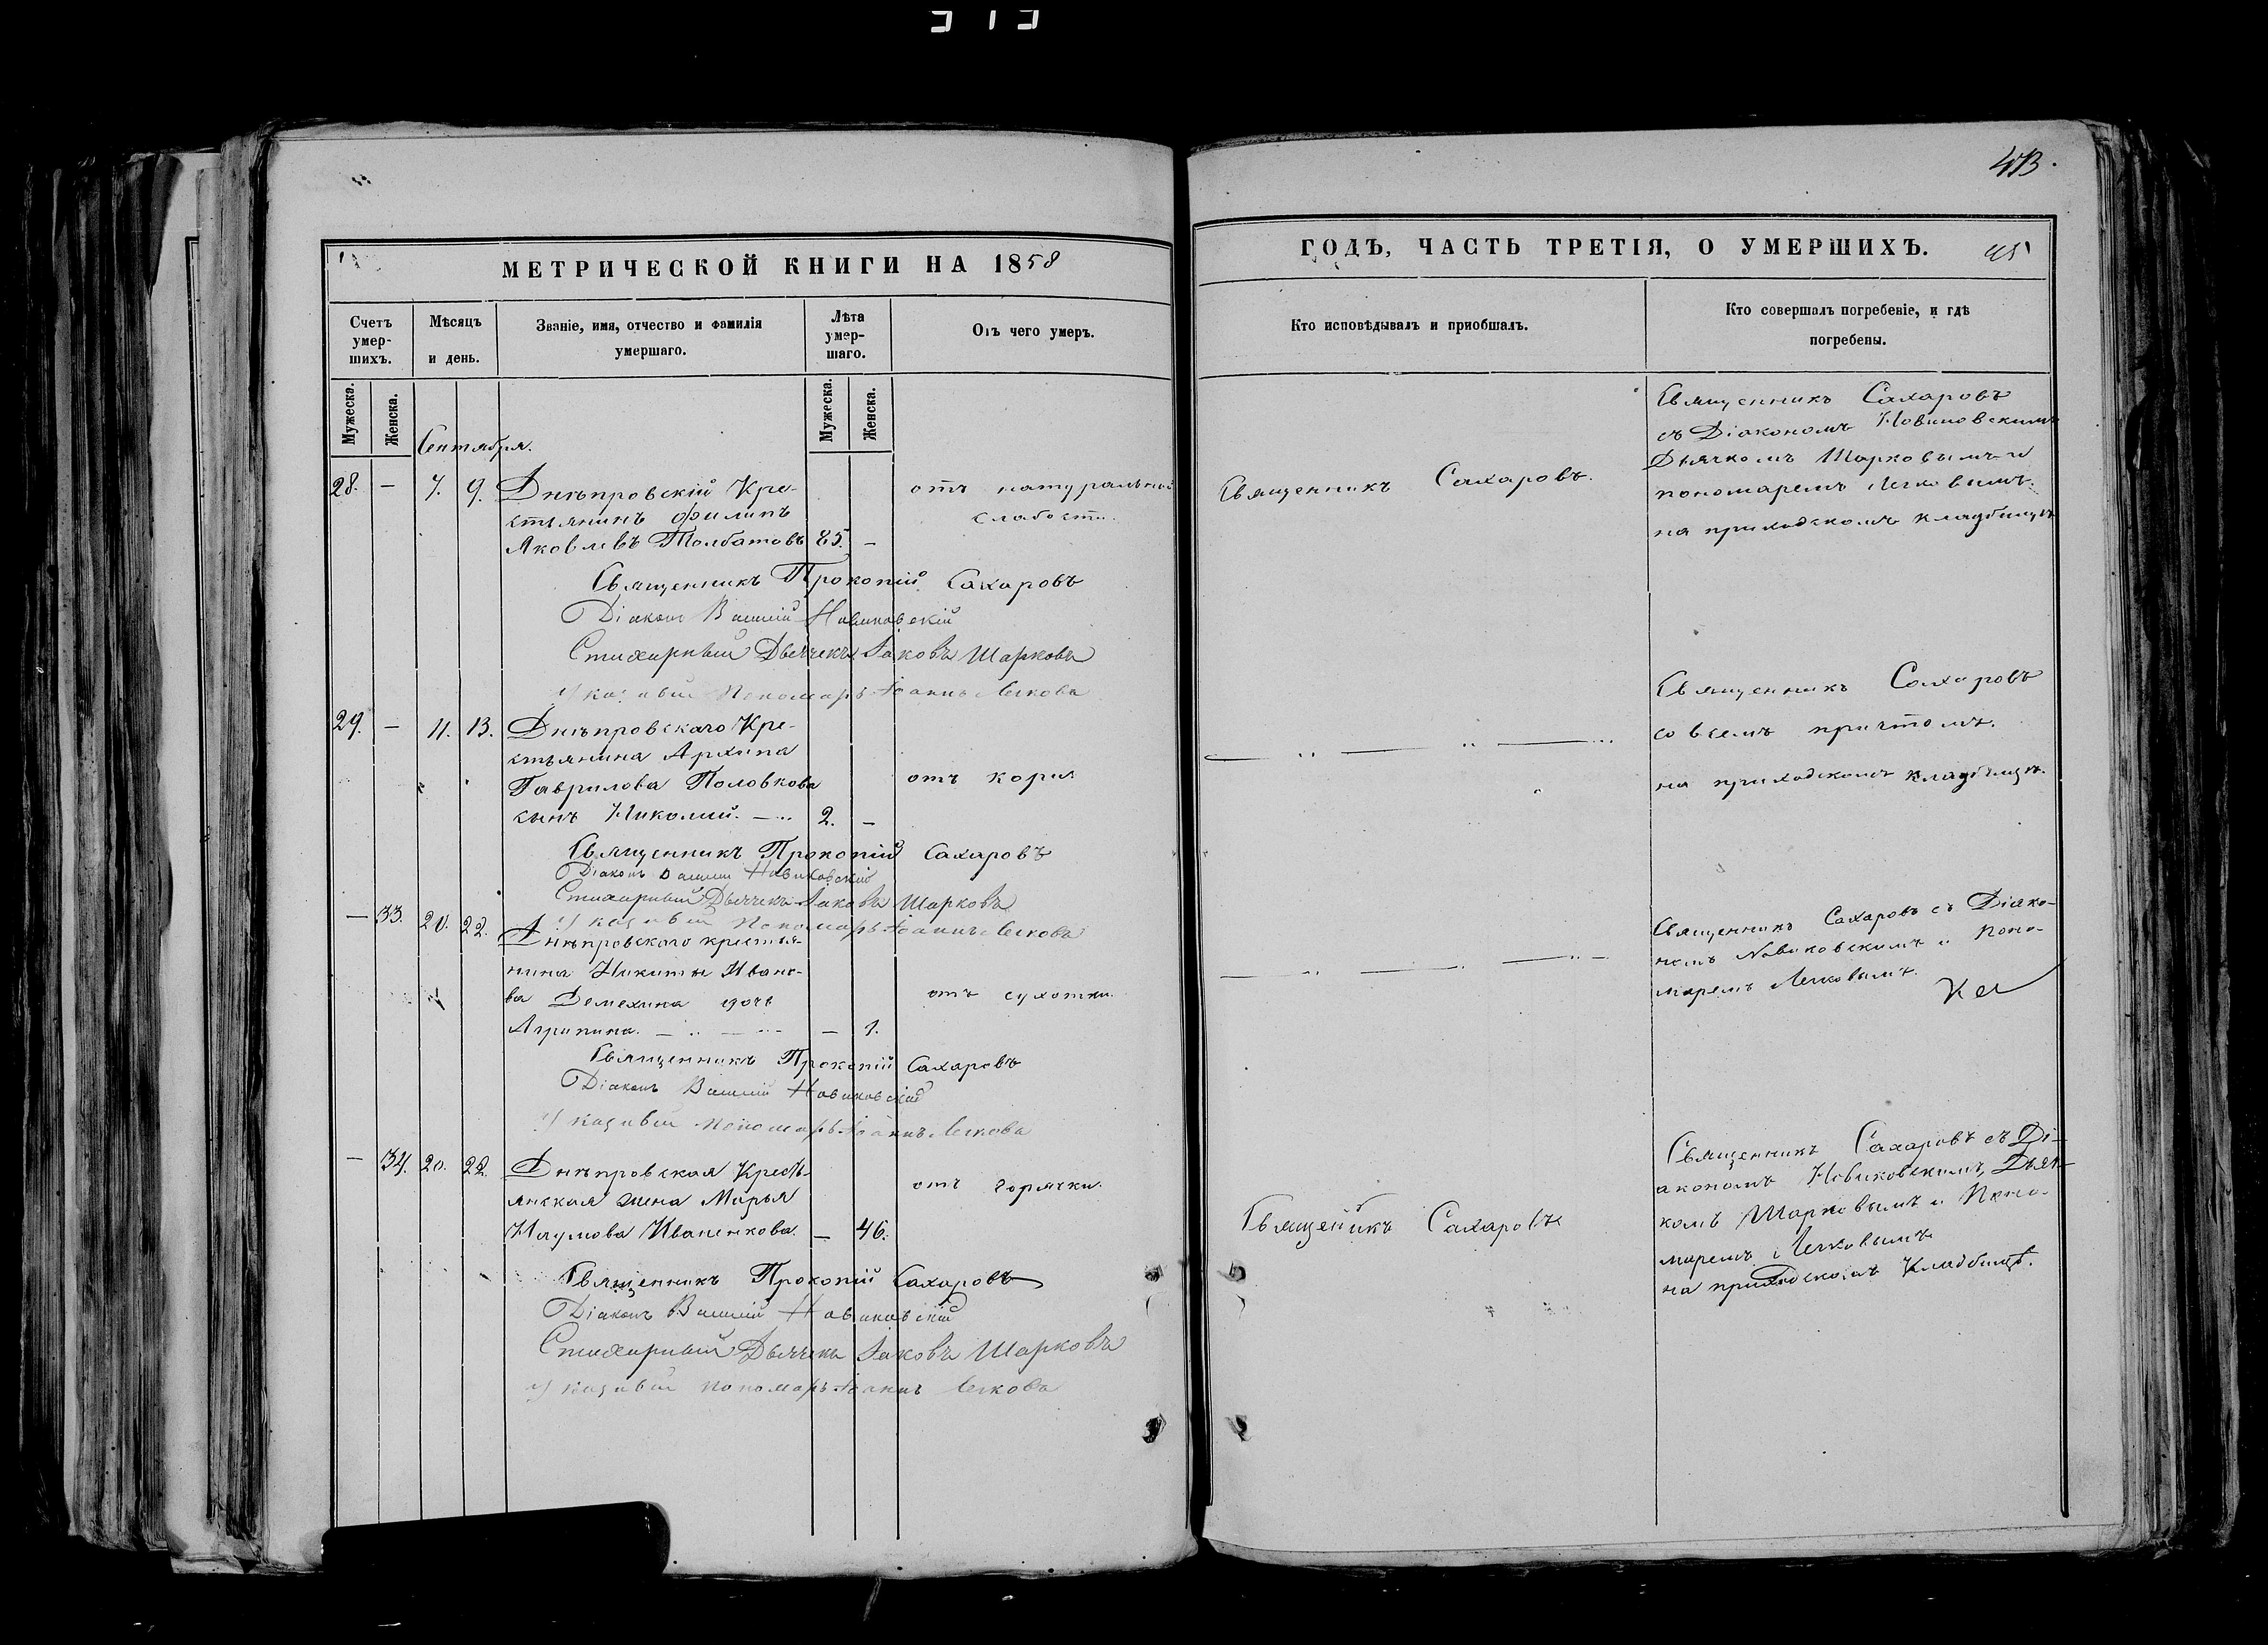 МЕТРИЧЕСКОЙ КНИГИ НА 1858
Счетъ умер-шихъ.
Мѣсяцъ и день.
Званіе, имя, отчество и фамилія умершаго.
Лѣта умер-шаго.
Отъ чего умеръ.
Мужеска.
Женска.
Мужеска.
Женска.
Сентября.
28. — 7. 9. Днѣпровскій Кре-
стьянинъ Филипъ
Яковлевъ Толбатовъ 85. —
отъ натуральной
слабости.
Священникъ Прокопій Сахаровъ
Діаконъ Василій Новиковскій
Стихарный Дьячекъ Іаковъ Шарковъ
Указный Пономарь Іоаннъ Легкова
29. — 11. 13. Днѣпровскаго Кре-
стьянина Архипа
Гаврилова Половкова
отъ кори
сынъ Николай. — 2. —
Священникъ Прокопій Сахаровъ
Діаконъ Василій Новиковскій
Стихарный Дьячекъ Іаковъ Шарковъ
Указный Пономарь Іоаннъ Легкова
— 33. 20. 22. Днѣпровскаго крестья-
нина Никиты Ивано-
ва Демехина дочь
отъ сухотки.
Агрипина. — — 1.
Священникъ Прокопій Сахаровъ
Діаконъ Василій Новиковскій
Указный Пономарь Іоаннъ Легкова
— 34. 20. 22. Днѣпровская Кресть-
янская жена Марья
отъ горячки.
Наумова Иваненкова. — 46.
Священникъ Прокопій Сахаровъ
Діаконъ Василій Новиковскій
Стихарный Дьячекъ Іаковъ Шарковъ
Указный Пономарь Іоаннъ Легкова
ГОДЪ, ЧАСТЬ ТРЕТІЯ, О УМЕРШИХЪ.
Кто исповѣдывалъ и пріобщалъ.
Кто совершалъ погребеніе, и гдѣ погребены.
Священникъ Сахаровъ.
Священникъ Сахаровъ
съ Діакономъ Новиковскимъ
Дьячкомъ Шарковымъ и
пономаремъ Легковымъ.
на приходскомъ кладбищѣ
Священникъ Сахаровъ
со всемъ причтомъ.
на приходскомъ кладбищѣ.
Священникъ Сахаровъ съ Діако-
номъ Новиковскимъ и поно-
маремъ Легковымъ.
Священникъ Сахаровъ
Священникъ Сахаровъ съ Ді-
акономъ Новиковскимъ, Дьяч-
комъ Шарковымъ и Поно-
маремъ Легковымъ
на приходскомъ Кладбищѣ.